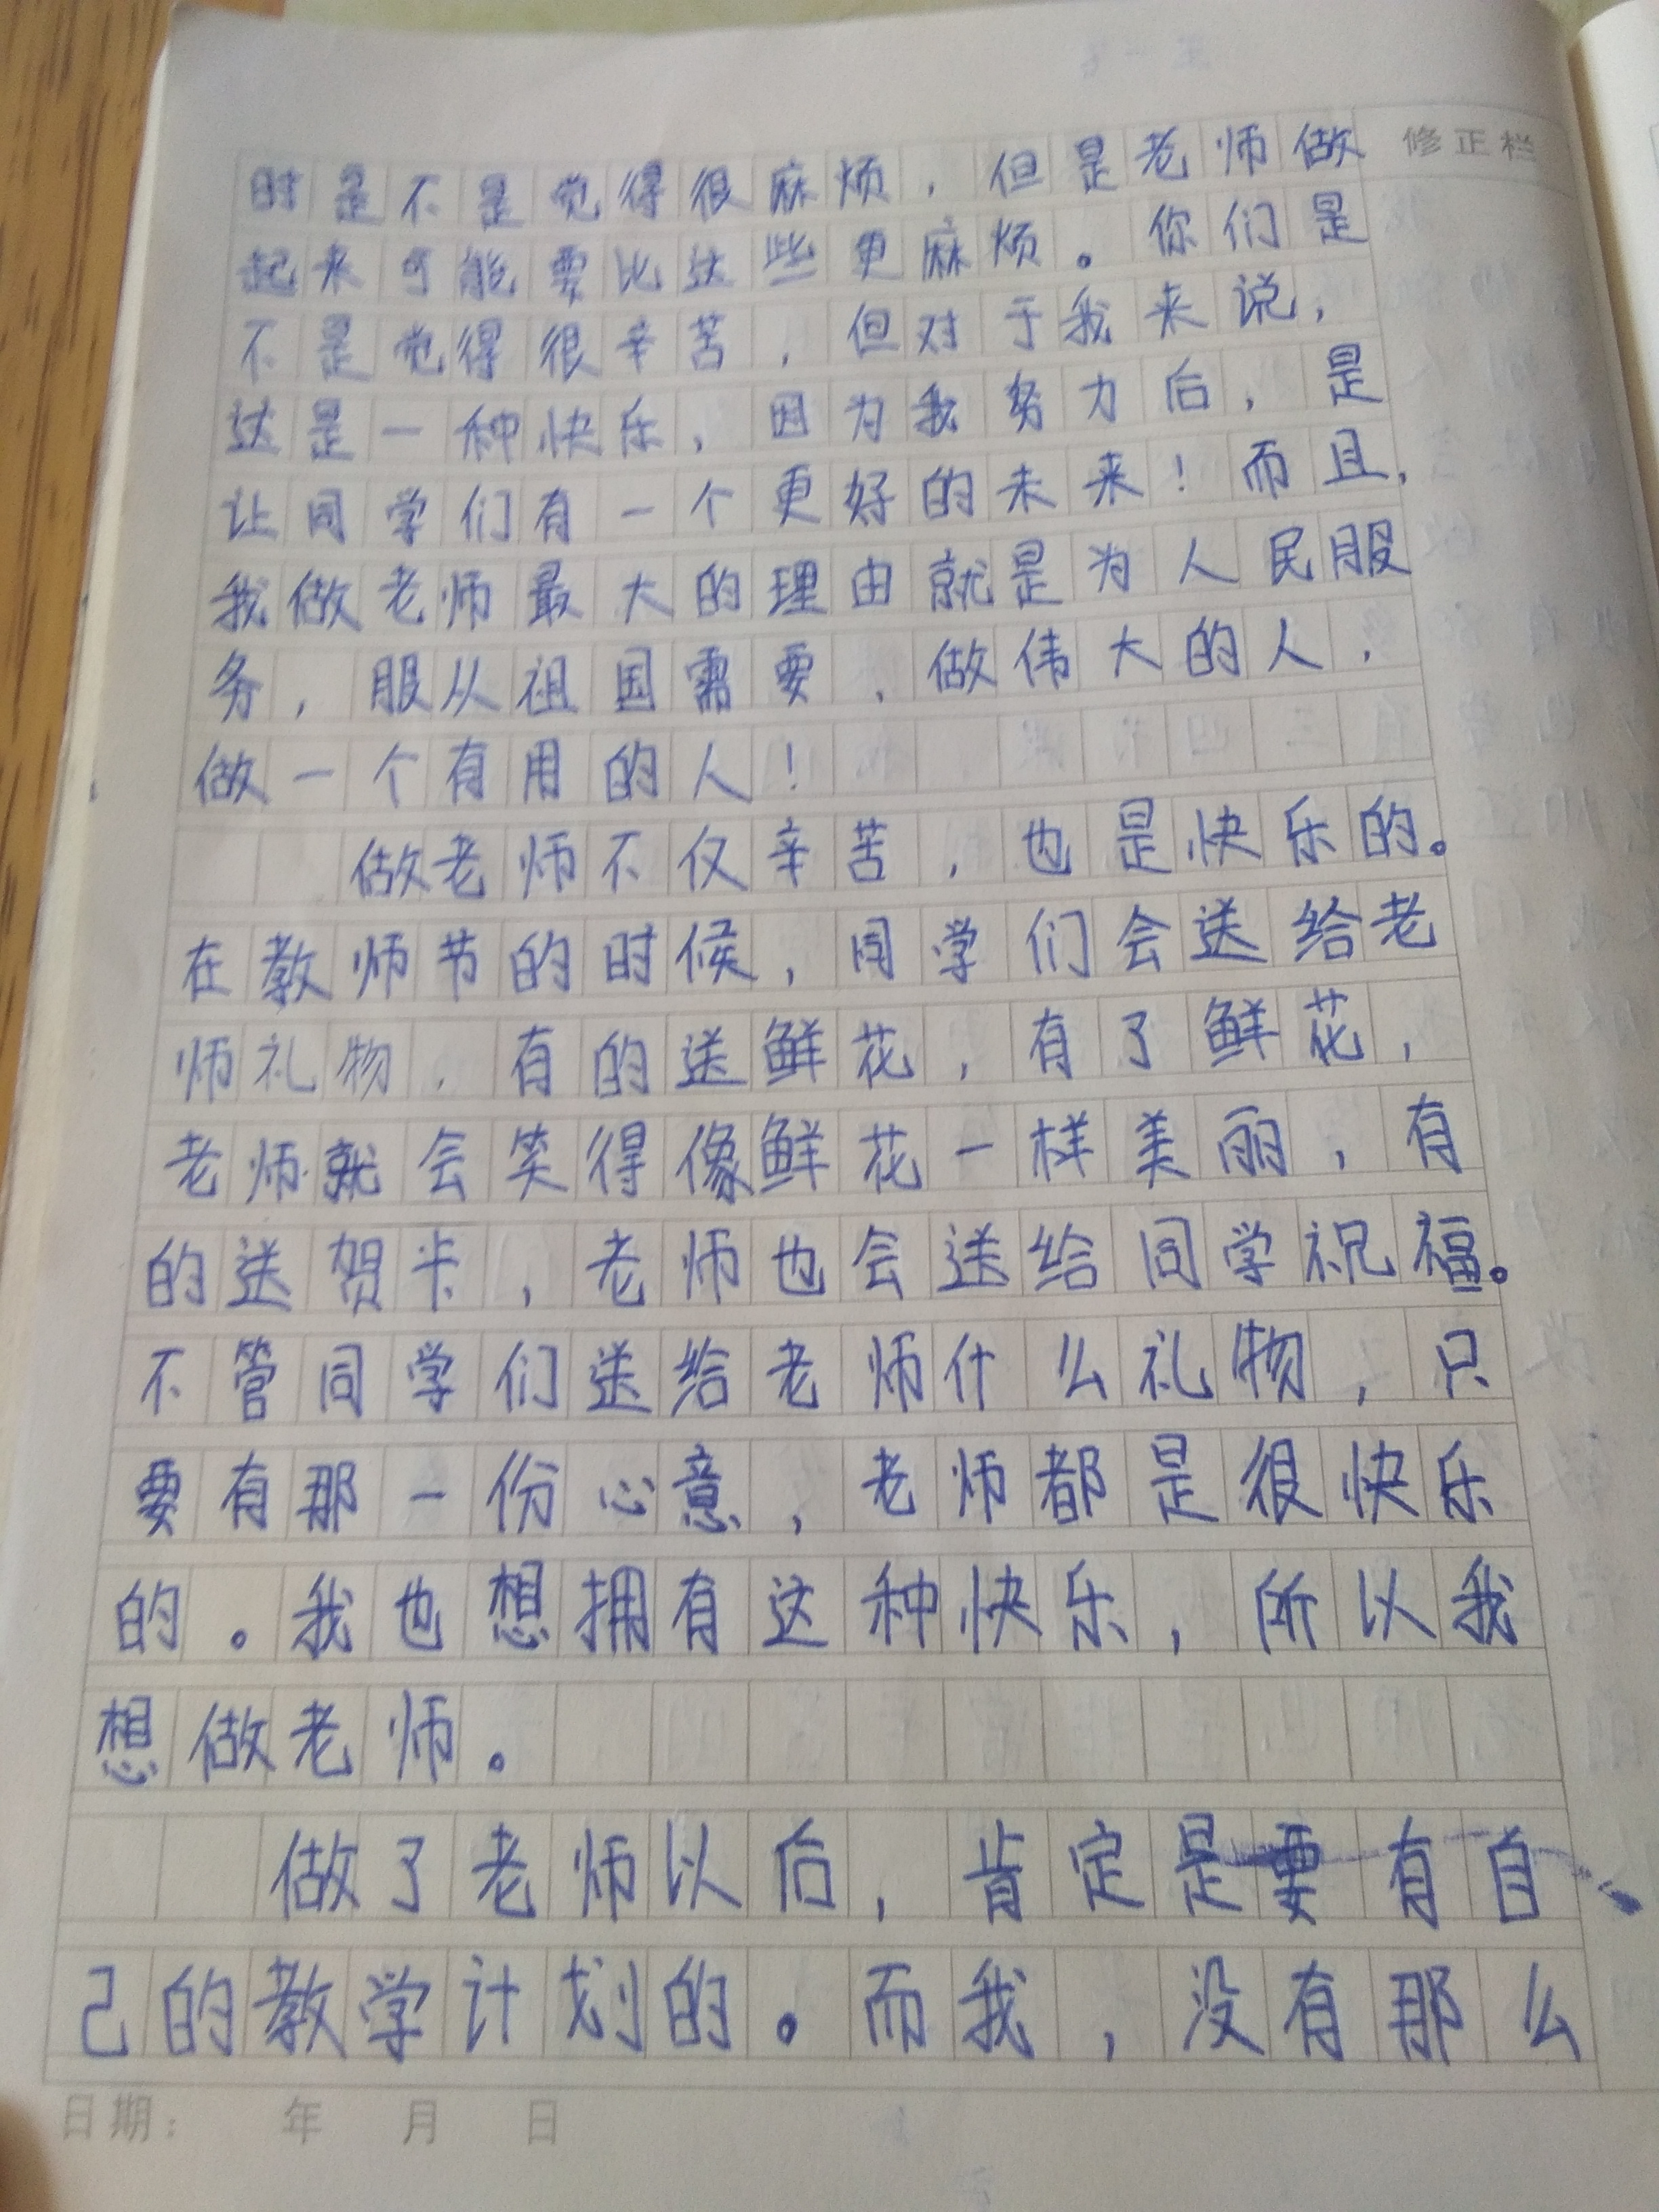 修正栏
时是不是觉得很麻烦，但是老师做
起来可能要比这些更麻烦。你们是
不是觉得很辛苦，但对于我来说，
这是一种快乐，因为我努力后，是
让同学们有一个更好的未来！而且，
我做老师最大的理由就是为人民服
务，服从祖国需要，做伟大的人，
做一个有用的人！
做老师不仅辛苦，也是快乐的。
在教师节的时候，同学们会送给老
师礼物，有的送鲜花，有了鲜花，
老师就会笑得像鲜花一样美丽，有
的送贺卡，老师也会送给同学祝福。
不管同学们送给老师什么礼物，只
要有那一份心意，老师都是很快乐
的。我也想拥有这种快乐，所以我
想做老师。
做了老师以后，肯定是要有自
己的教学计划的。而我，没有那么
日期： 年 月 日